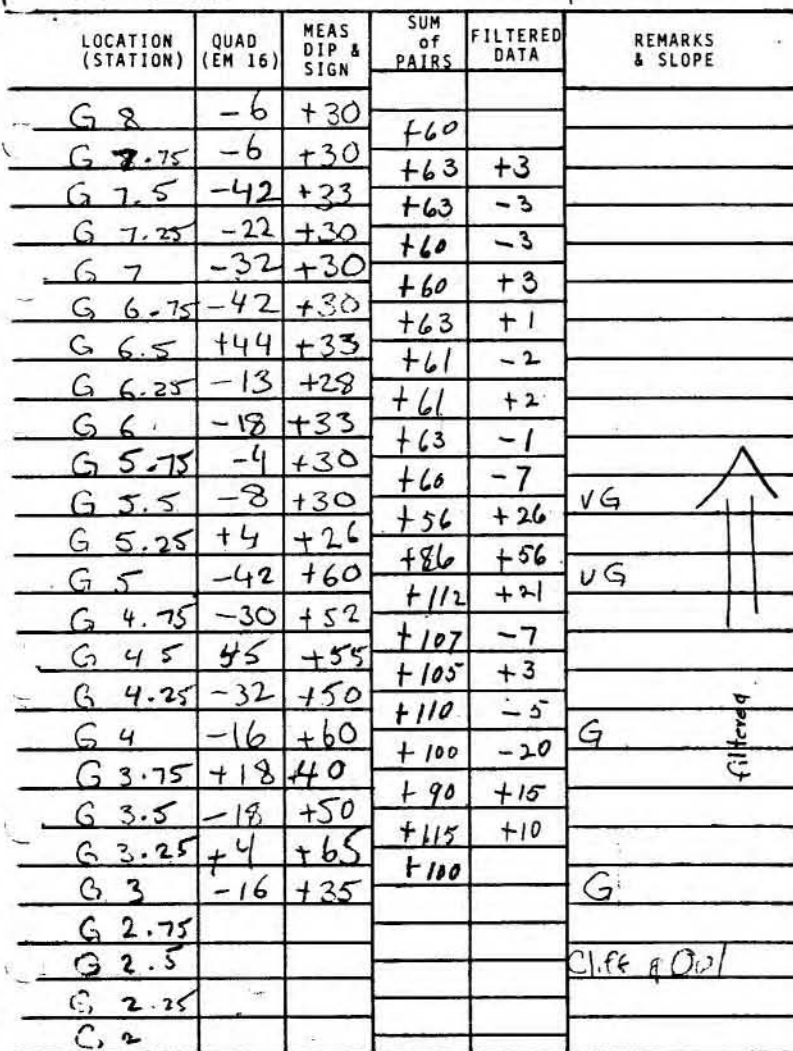 LOCATION (STATION) QUAD (EM 16) MEAS DIP & SIGN SUM of PAIRS FILTERED DATA REMARKS & SLOPE
G 8 -6 +30
+60
G 7.75 -6 +30
+63 +3
G 7.5 -42 +33
+63 -3
G 7.25 -22 +30
+60 -3
G 7 -32 +30
+60 +3
G 6.75 -42 +30
+63 +1
G 6.5 +44 +33
+61 -2
G 6.25 -13 +28
+61 +2
G 6 -18 +33
+63 -1
G 5.75 -4 +30
+60 -7
G 5.5 -8 +30 VG
+56 +26
G 5.25 +4 +26
+86 +56
G 5 -42 +60 VG
+112 +21
G 4.75 -30 +52
+107 -7
G 4 5 45 +55
+105 +3
G 4.25 -32 +50
+110 -5
G 4 -16 +60 G
+100 -20
filtered
G 3.75 +18 +40
+90 +15
G 3.5 -18 +50
+115 +10
G 3.25 +4 +65
+100
G 3 -16 +35 G
G 2.75
G 2.5 Cliff
G 2.25
G 2